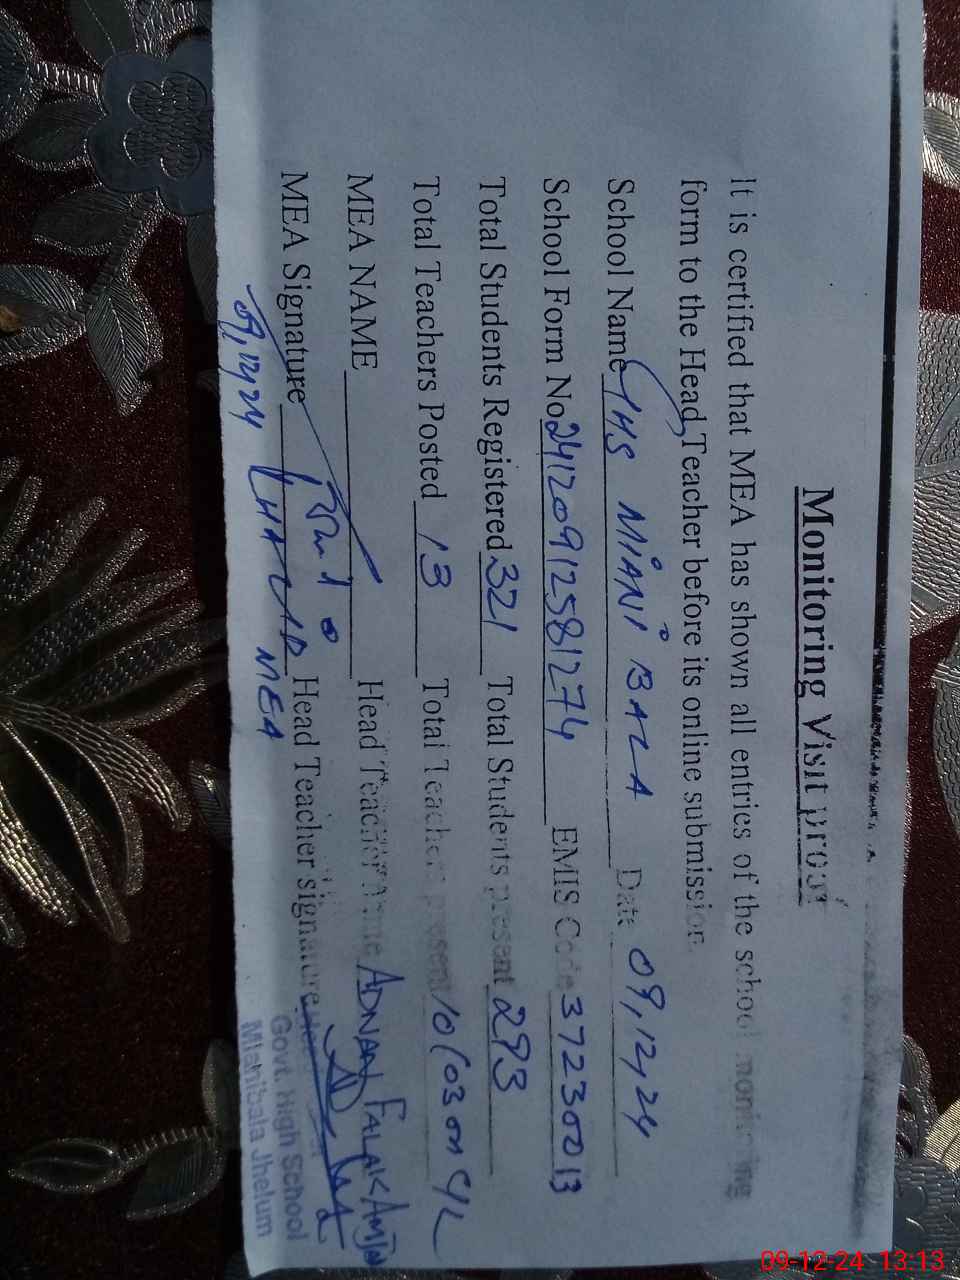 Monitoring Visit proof
It is certified that MEA has shown all entries of the school monitoring
form to the Head Teacher before its online submission.
School Name GHS MIANI BALA Date 09,12,24
School Form No 24120912581274 EMIS Code 37230013
Total Students Registered 321 Total Students present 293
Total Teachers Posted 13 Total Teachers present 10 (03 on C/L
MEA NAME Head Teacher Name ADNAN FALAK AMJAD
MEA Signature Head Teacher signature
9,12,24 MEA
Govt. High School
Mianibala Jhelum
09-12-24 13:13